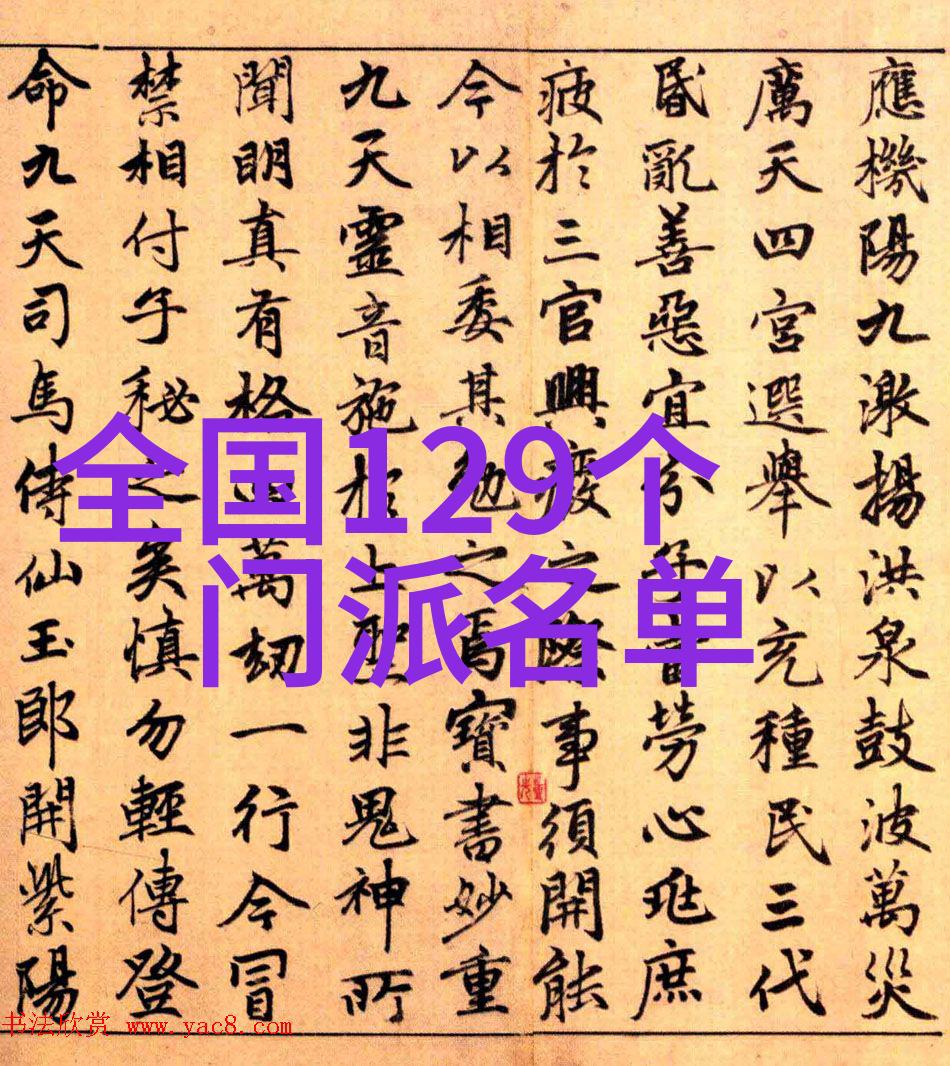 應機陽九激揚洪泉鼓波萬災
厲天四宮選舉以充種民三代
昏亂善惡宜分子當勞心兆庶
疲於三官興廢之際事須開能
今以相委其勉之焉寶書妙重
九天靈音施於上聖非鬼神所
聞明真有格萬劫一行今冒
禁相付子秘之矣慎勿輕傳登
命九天司馬侍仙玉郎開紫陽
全国129个
门派名单
书法欣赏 www.yac8.com